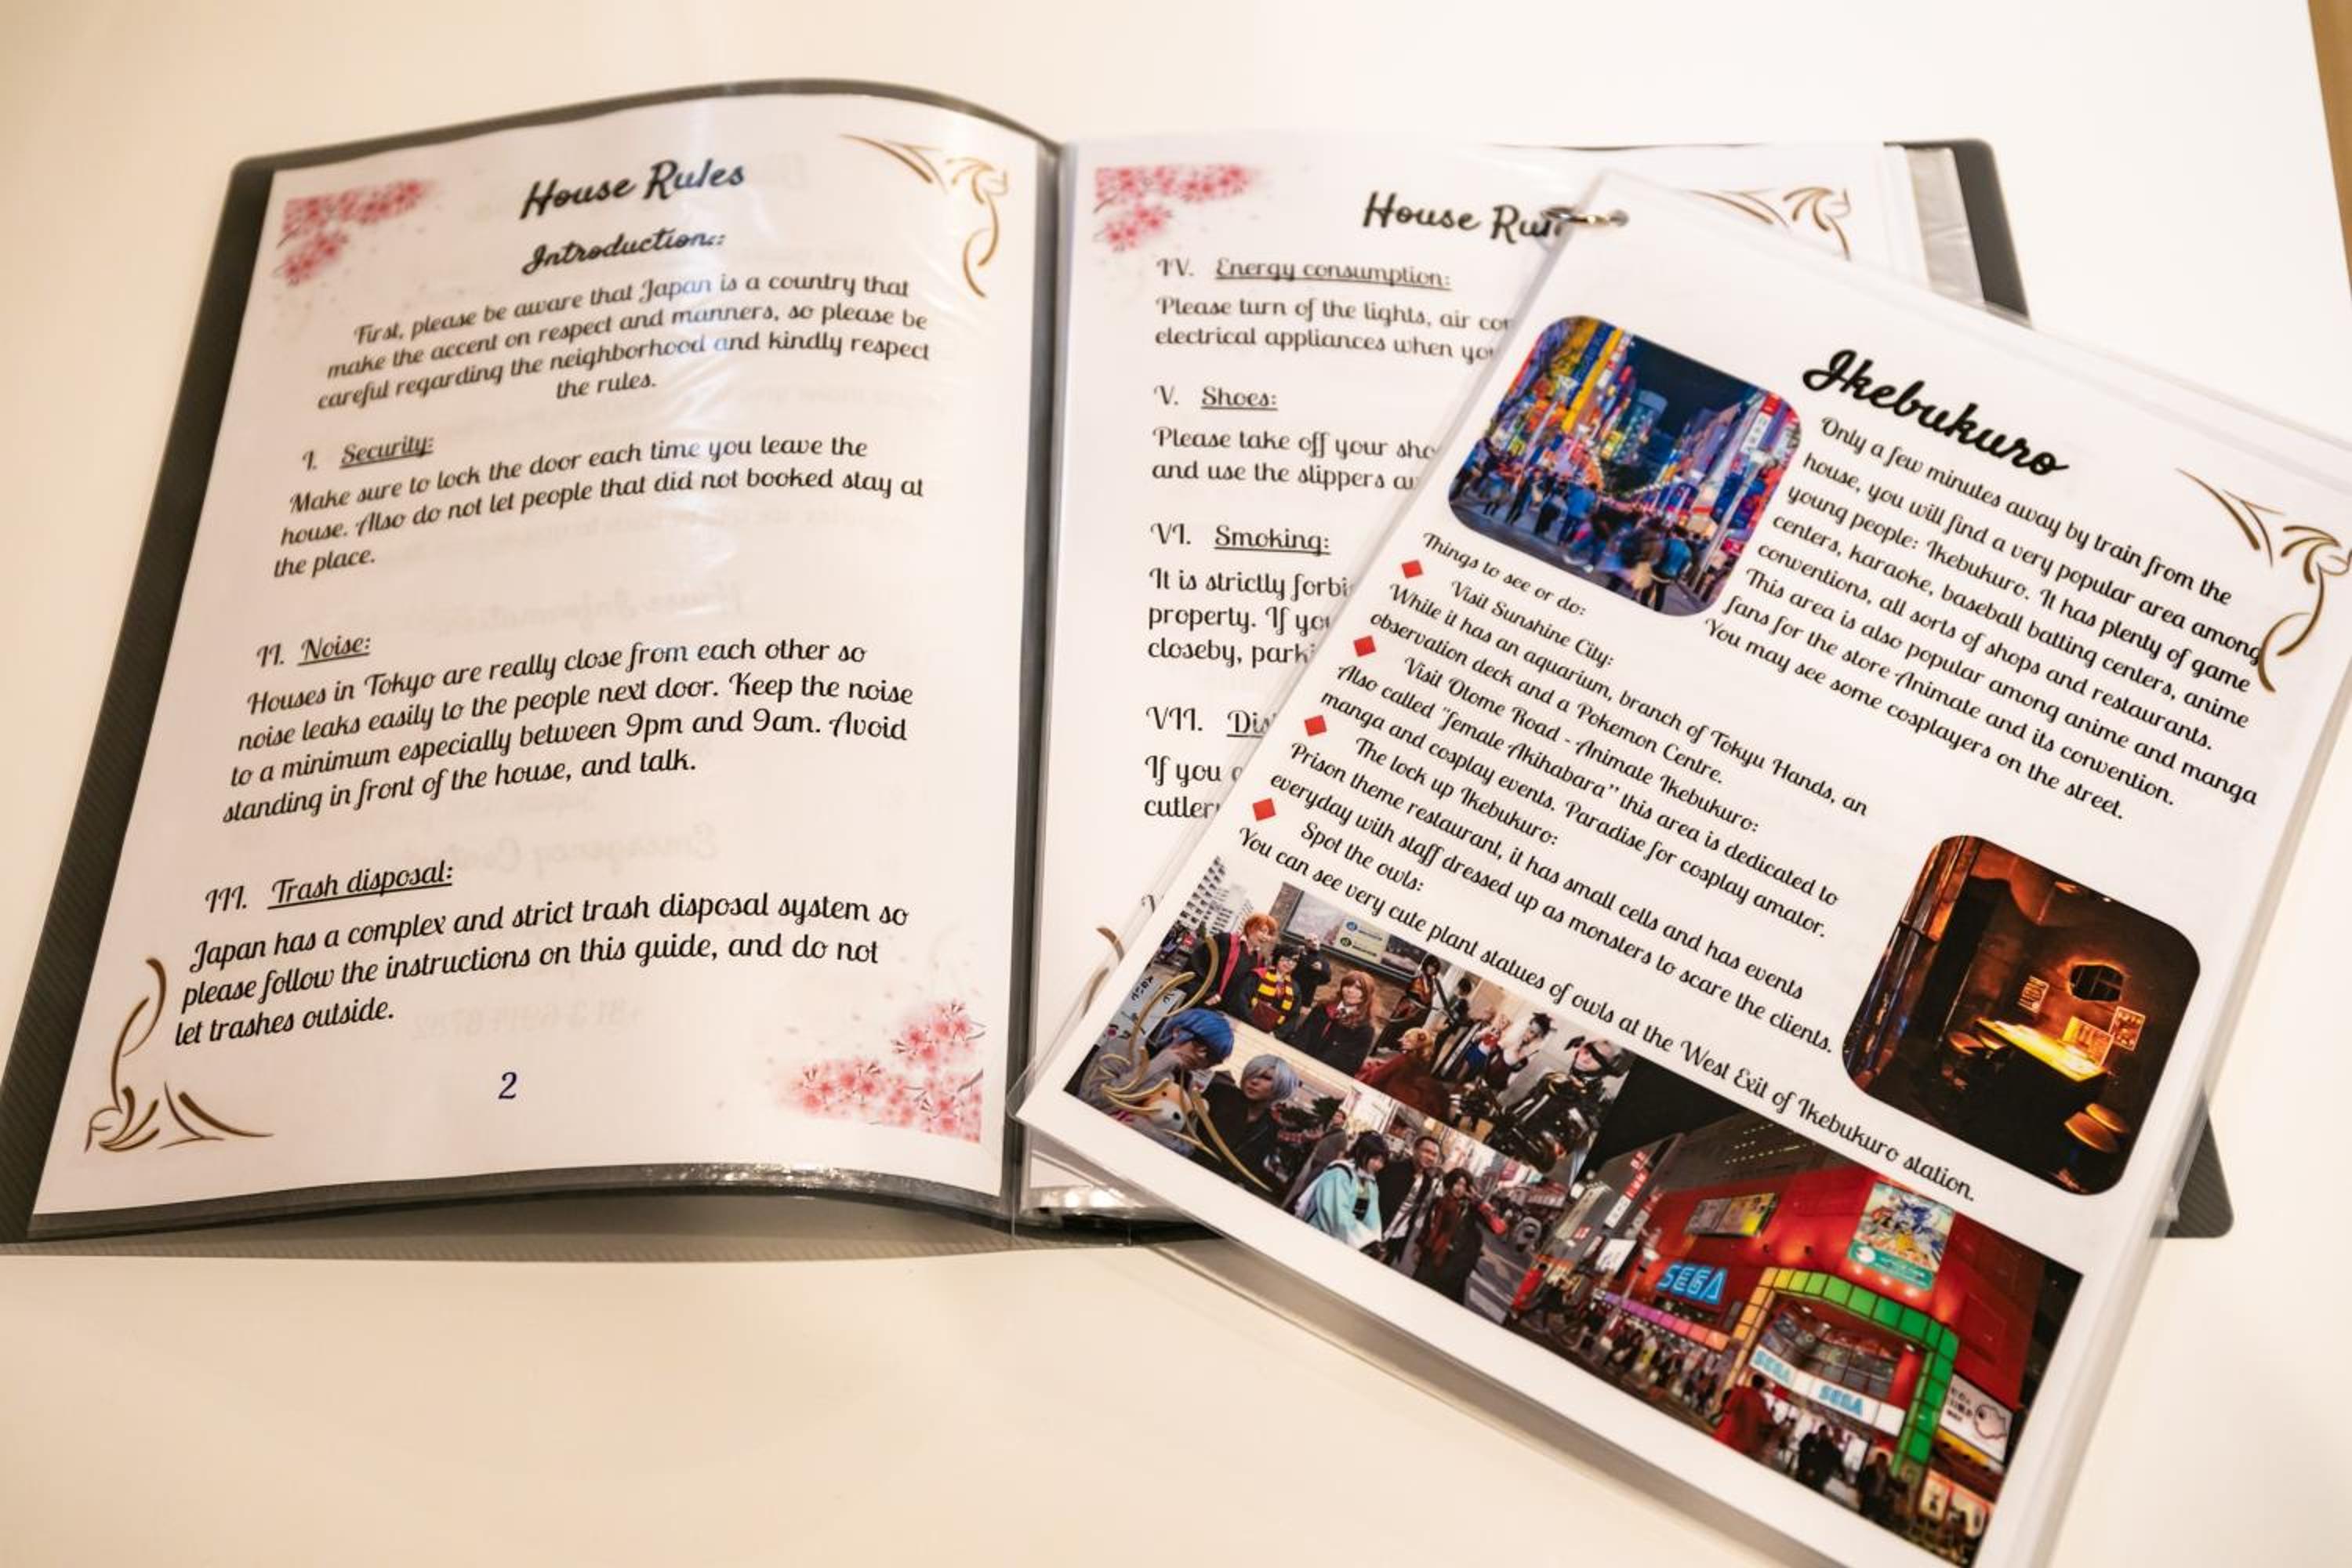 House Rules
Introduction::
First, please be aware that Japan is a country that
make the accent on respect and manners, so please be
careful regarding the neighborhood and kindly respect
the rules.
I. Security:
Make sure to lock the door each time you leave the
house. Also do not let people that did not booked stay at
the place.
II. Noise:
Houses in Tokyo are really close from each other so
noise leaks easily to the people next door. Keep the noise
to a minimum especially between 9pm and 9am. Avoid
standing in front of the house, and talk.
III. Trash disposal:
Japan has a complex and strict trash disposal system so
please follow the instructions on this guide, and do not
let trashes outside.
2
House
IV. Energy consumption:
Please turn of the lights, air
electrical appliances when
V. Shoes:
Please take off your
and use the slippers
VI. Smoking:
It is strictly
property. If
closeby,
VII.
If you
Ikebukuro
Only a few minutes away by train from the
house, you will find a very popular area among
young people: Ikebukuro. It has plenty of game
centers, karaoke, baseball batting centers, anime
conventions, all sorts of shops and restaurants.
This area is also popular among anime and manga
fans for the store Animate and its convention.
You may see some cosplayers on the street.
Things to see or do:
Visit Sunshine City:
While it has an aquarium, branch of Tokyu Hands, an
observation deck and a Pokemon Centre.
Visit Otome Road - Animate Ikebukuro:
Also called "female Akihabara" this area is dedicated to
manga and cosplay events. Paradise for cosplay amator.
The lock up Ikebukuro:
Prison theme restaurant, it has small cells and has events
everyday with staff dressed up as monsters to scare the clients.
Spot the owls:
You can see very cute plant statues of owls at the West Exit of Ikebukuro station.
SEGA
SEGA
SEGA